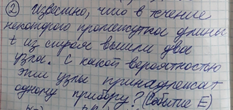 ② Известно, что в течение
некоторого промежутка длины
t из строя вышли два
узла. С какой вероятностью
эти узлы принадлежат
одному прибору? (Событие E)